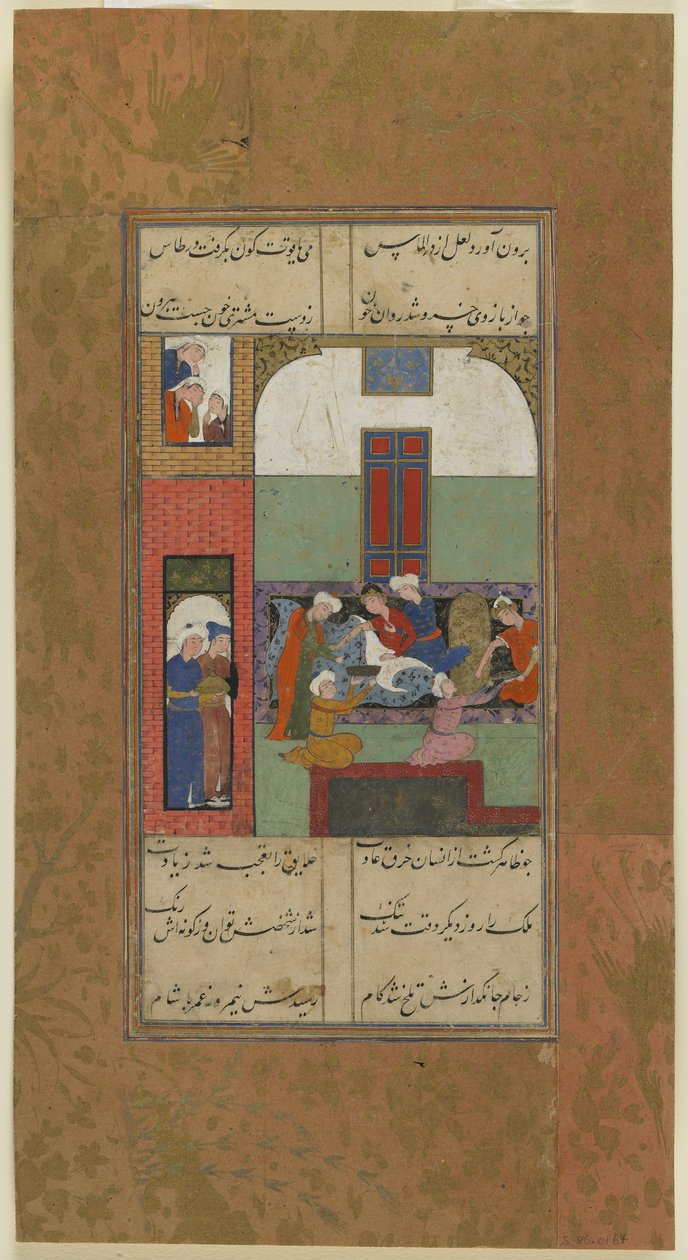 برون آورد لعل از در الماس می یاقوت کون بگرفت در طاس
جو از بازوی خسرو شد روان خون ز دست مشتری خون جست بیرون
جو ظاهر کشت از انسان خرق عادت خلایق را تعجب شد زیادت
ملک را روز دیکر وقت شد تنک شد از شخصش توان وز کونه اش رنک
ز جام جانکدازش تلخ شد کام رسیدش نیمروز عمر با شام
S 86.0164